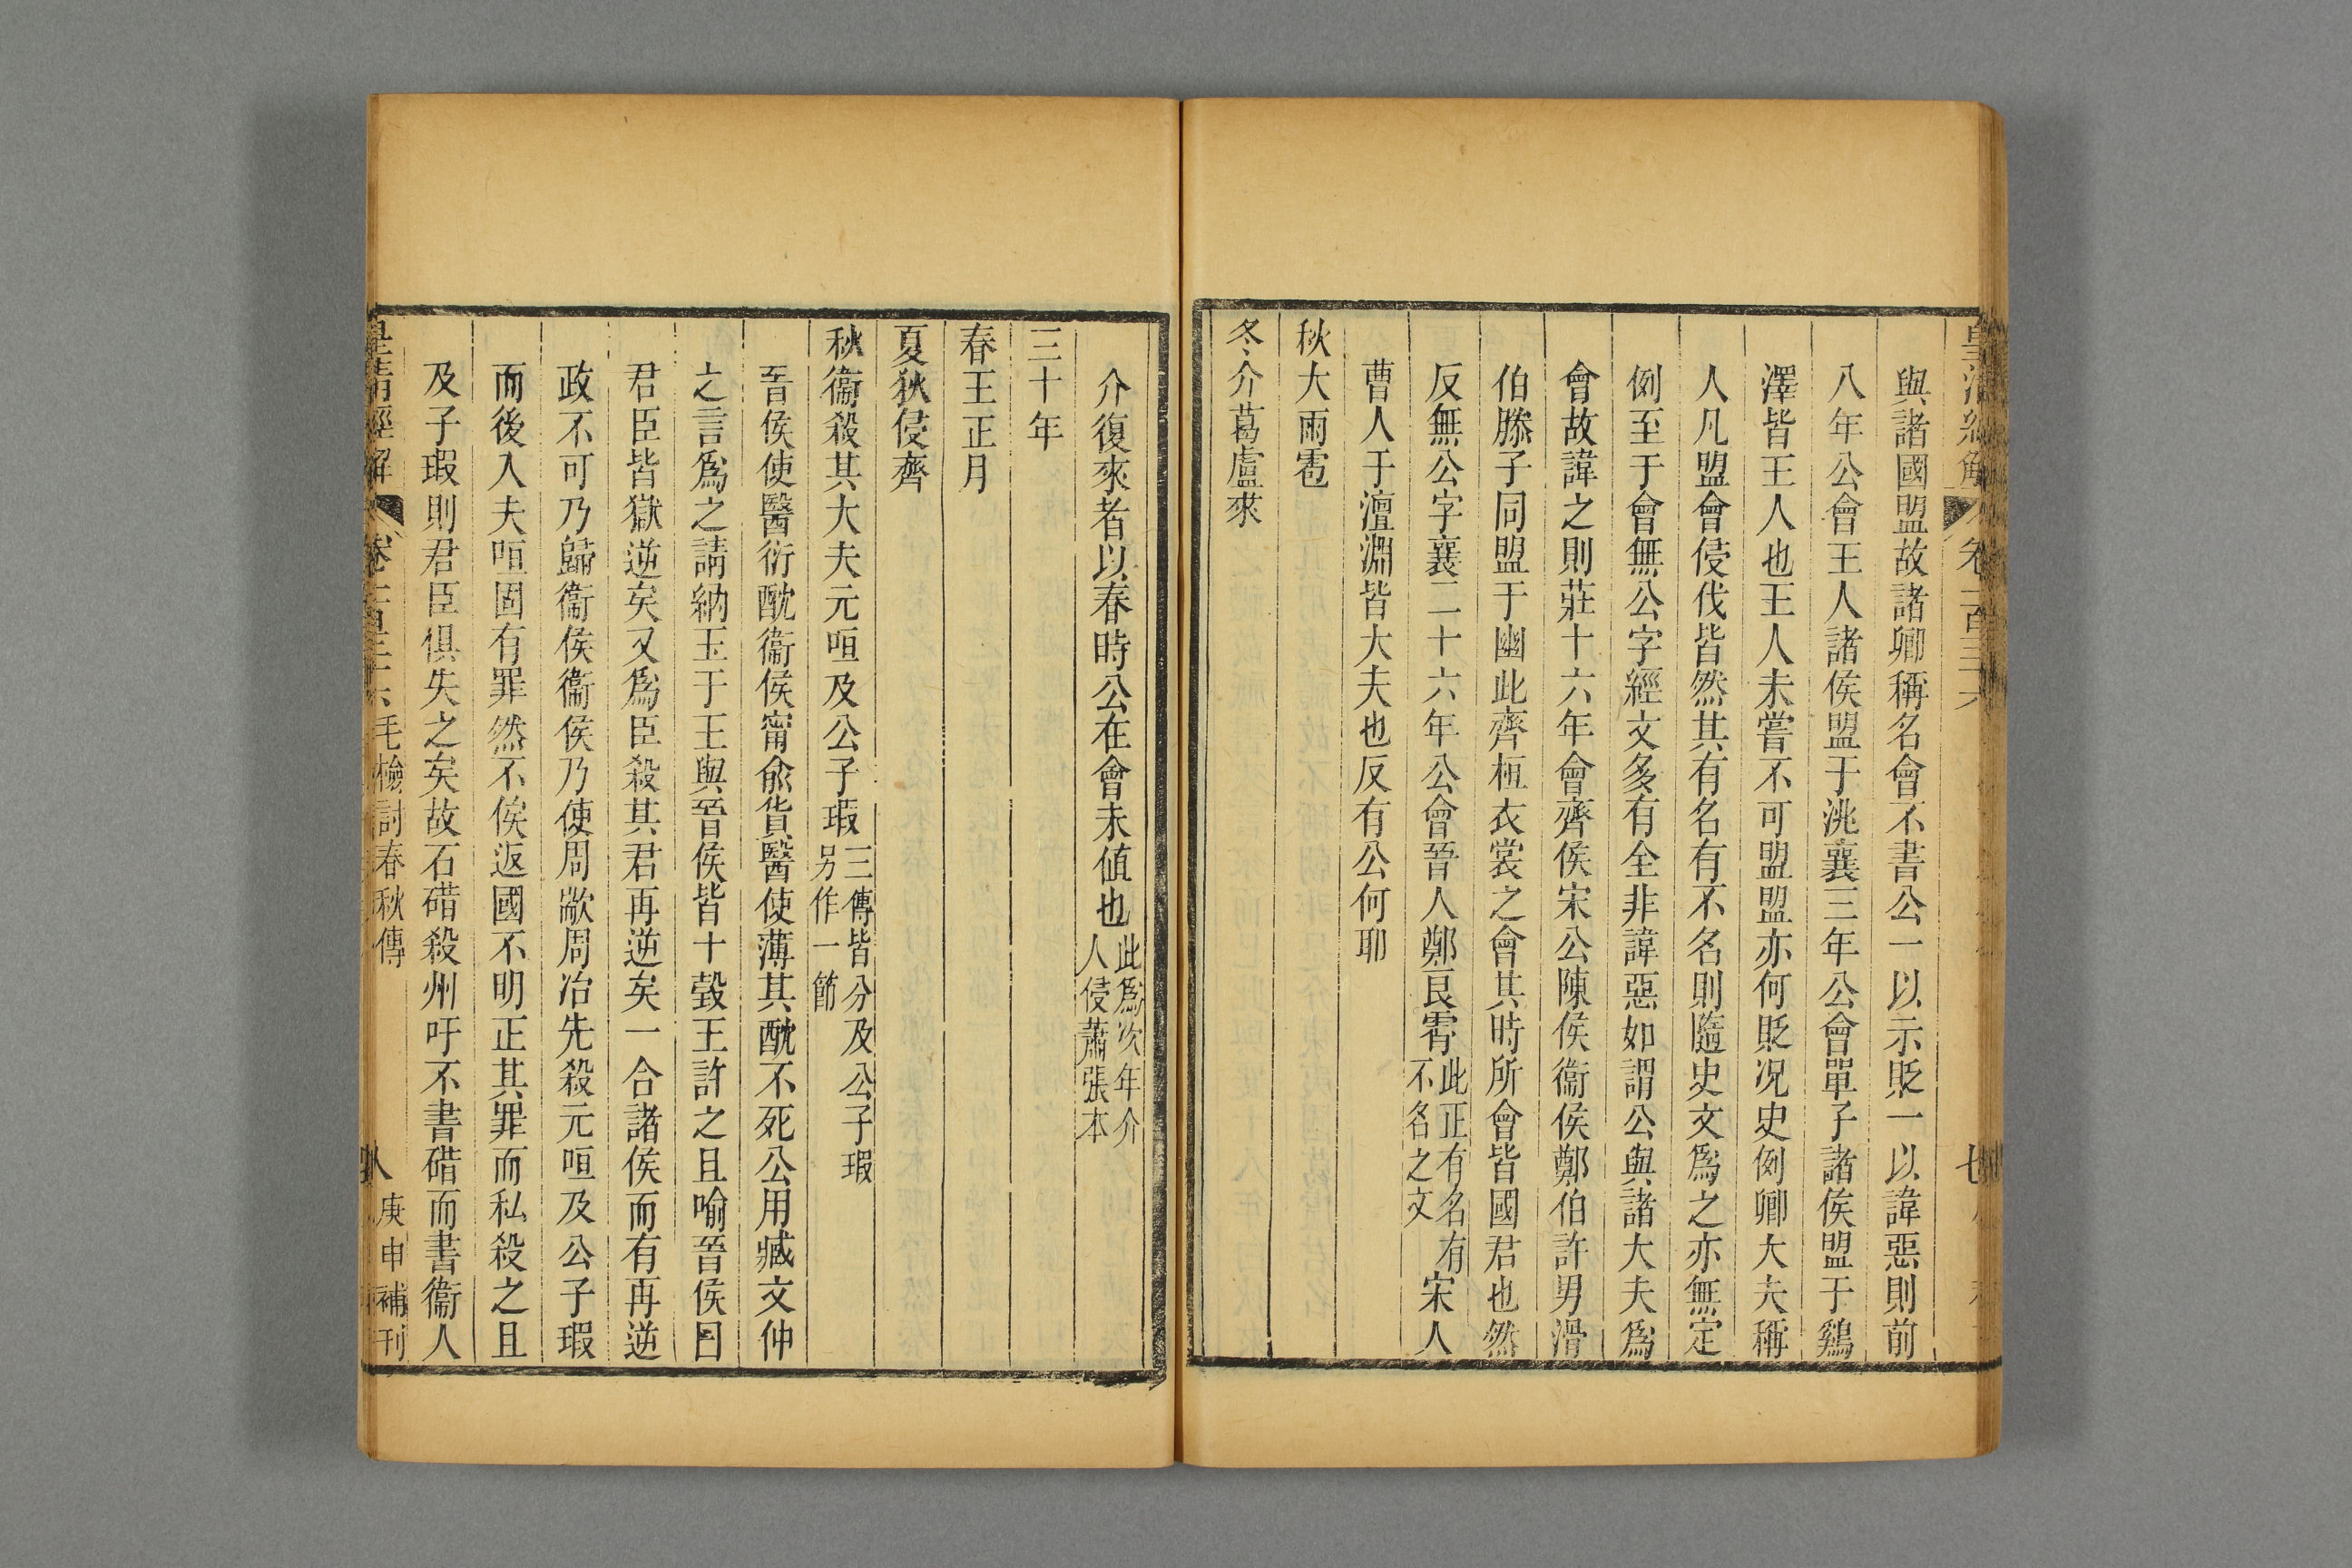 與諸國盟故諸卿稱名會不書公一以示貶一以諱惡則前
八年公會王人諸侯盟于洮襄三年公會單子諸侯盟于鷄
澤皆王人也王人未嘗不可盟盟亦何貶况史例卿大夫稱
人凡盟會侵伐皆然其有名有不名則隨史文爲之亦無定
例至于會無公字經文多有全非諱惡如謂公與諸大夫爲
會故諱之則莊十六年會齊侯宋公陳侯衞侯鄭伯許男滑
伯滕子同盟于幽此齊桓衣裳之會其時所會皆國君也然
反無公字襄二十六年公會晉人鄭良霄此正有名有不名之文宋人
曹人于澶淵皆大夫也反有公何耶
秋大雨雹
冬介葛盧來
介復來者以春時公在會未値也此爲次年介人侵蕭張本
三十年
春王正月
夏狄侵齊
秋衞殺其大夫元咺及公子瑕三傳皆分及公子瑕另作一節
晉侯使醫衍酖衞侯甯俞貨醫使薄其酖不死公用臧文仲
之言爲之請納玉于王與晉侯皆十瑴王許之且喻晉侯曰
君臣皆獄逆矣又爲臣殺其君再逆矣一合諸侯而有再逆
政不可乃歸衞侯衞侯乃使周歂周冶先殺元咺及公子瑕
而後入夫咺固有罪然不俟返國不明正其罪而私殺之且
及子瑕則君臣俱失之矣故石碏殺州吁不書碏而書衞人
皇淸經解 卷一百三十六 毛檢討春秋傳 八 庚申補刊